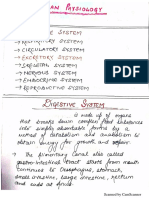 AN PHYSIOLOGY
SYSTEM
→ RESPIRATORY SYSTEM
→ CIRCULATORY SYSTEM
→ EXCRETORY SYSTEM
→ SKELETAL SYSTEM
→ NERVOUS SYSTEM
→ ENDOCRINE SYSTEM
→ REPRODUCTIVE SYSTEM
DIGESTIVE SYSTEM
is a wide of organs
that breaks down complex food substances
into simply absorbable forms by a
of metabolism and
obtain energy for growth and repair
→ The Alimentary Canal also called
tract starts from mouth
Continues to Oesophagus, stomach,
small intestine, large intestine, rectum
and ends at Anus.
Scanned by CamScanner